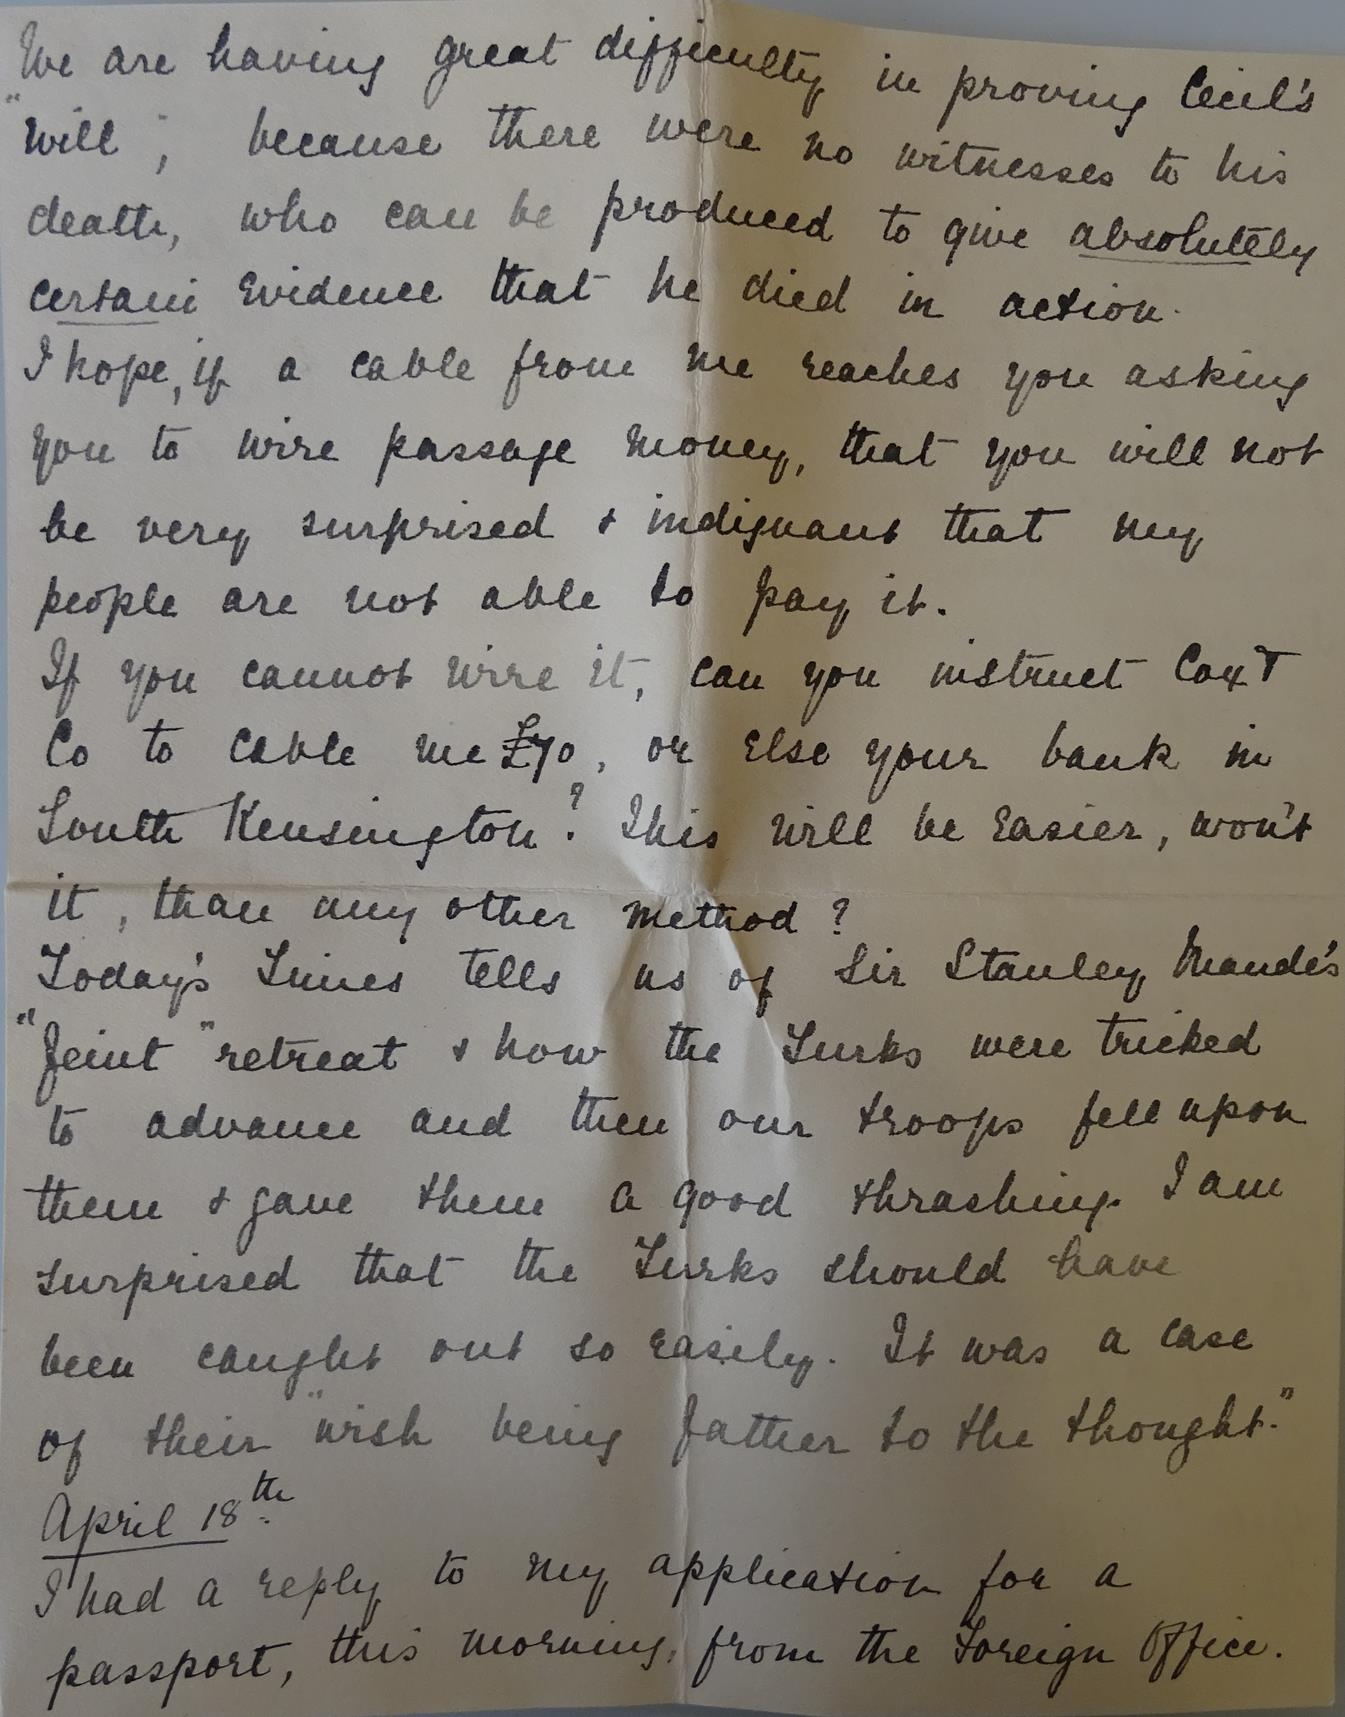 We are having great difficulty in proving Cecil's
"Will", because there were no witnesses to his
death, who can be produced to give absolutely
certain evidence that he died in action.
I hope, if a cable from me reaches you asking
you to wire passage money, that you will not
be very surprised & indignant that my
people are not able to pay it.
If you cannot wire it, can you instruct Cox &
Co to cable me £70, or else your bank in
South Kensington? This will be easier, won't
it, than any other method?
Today's Times tells us of Sir Stanley Maude's
"Feint" retreat & how the Turks were tricked
to advance and then our troops fell upon
them & gave them a good thrashing. I am
surprised that the Turks should have
been caught out so easily. It was a case
of their "wish being father to the thought."
April 18th
I had a reply to my application for a
passport, this morning, from the Foreign Office.